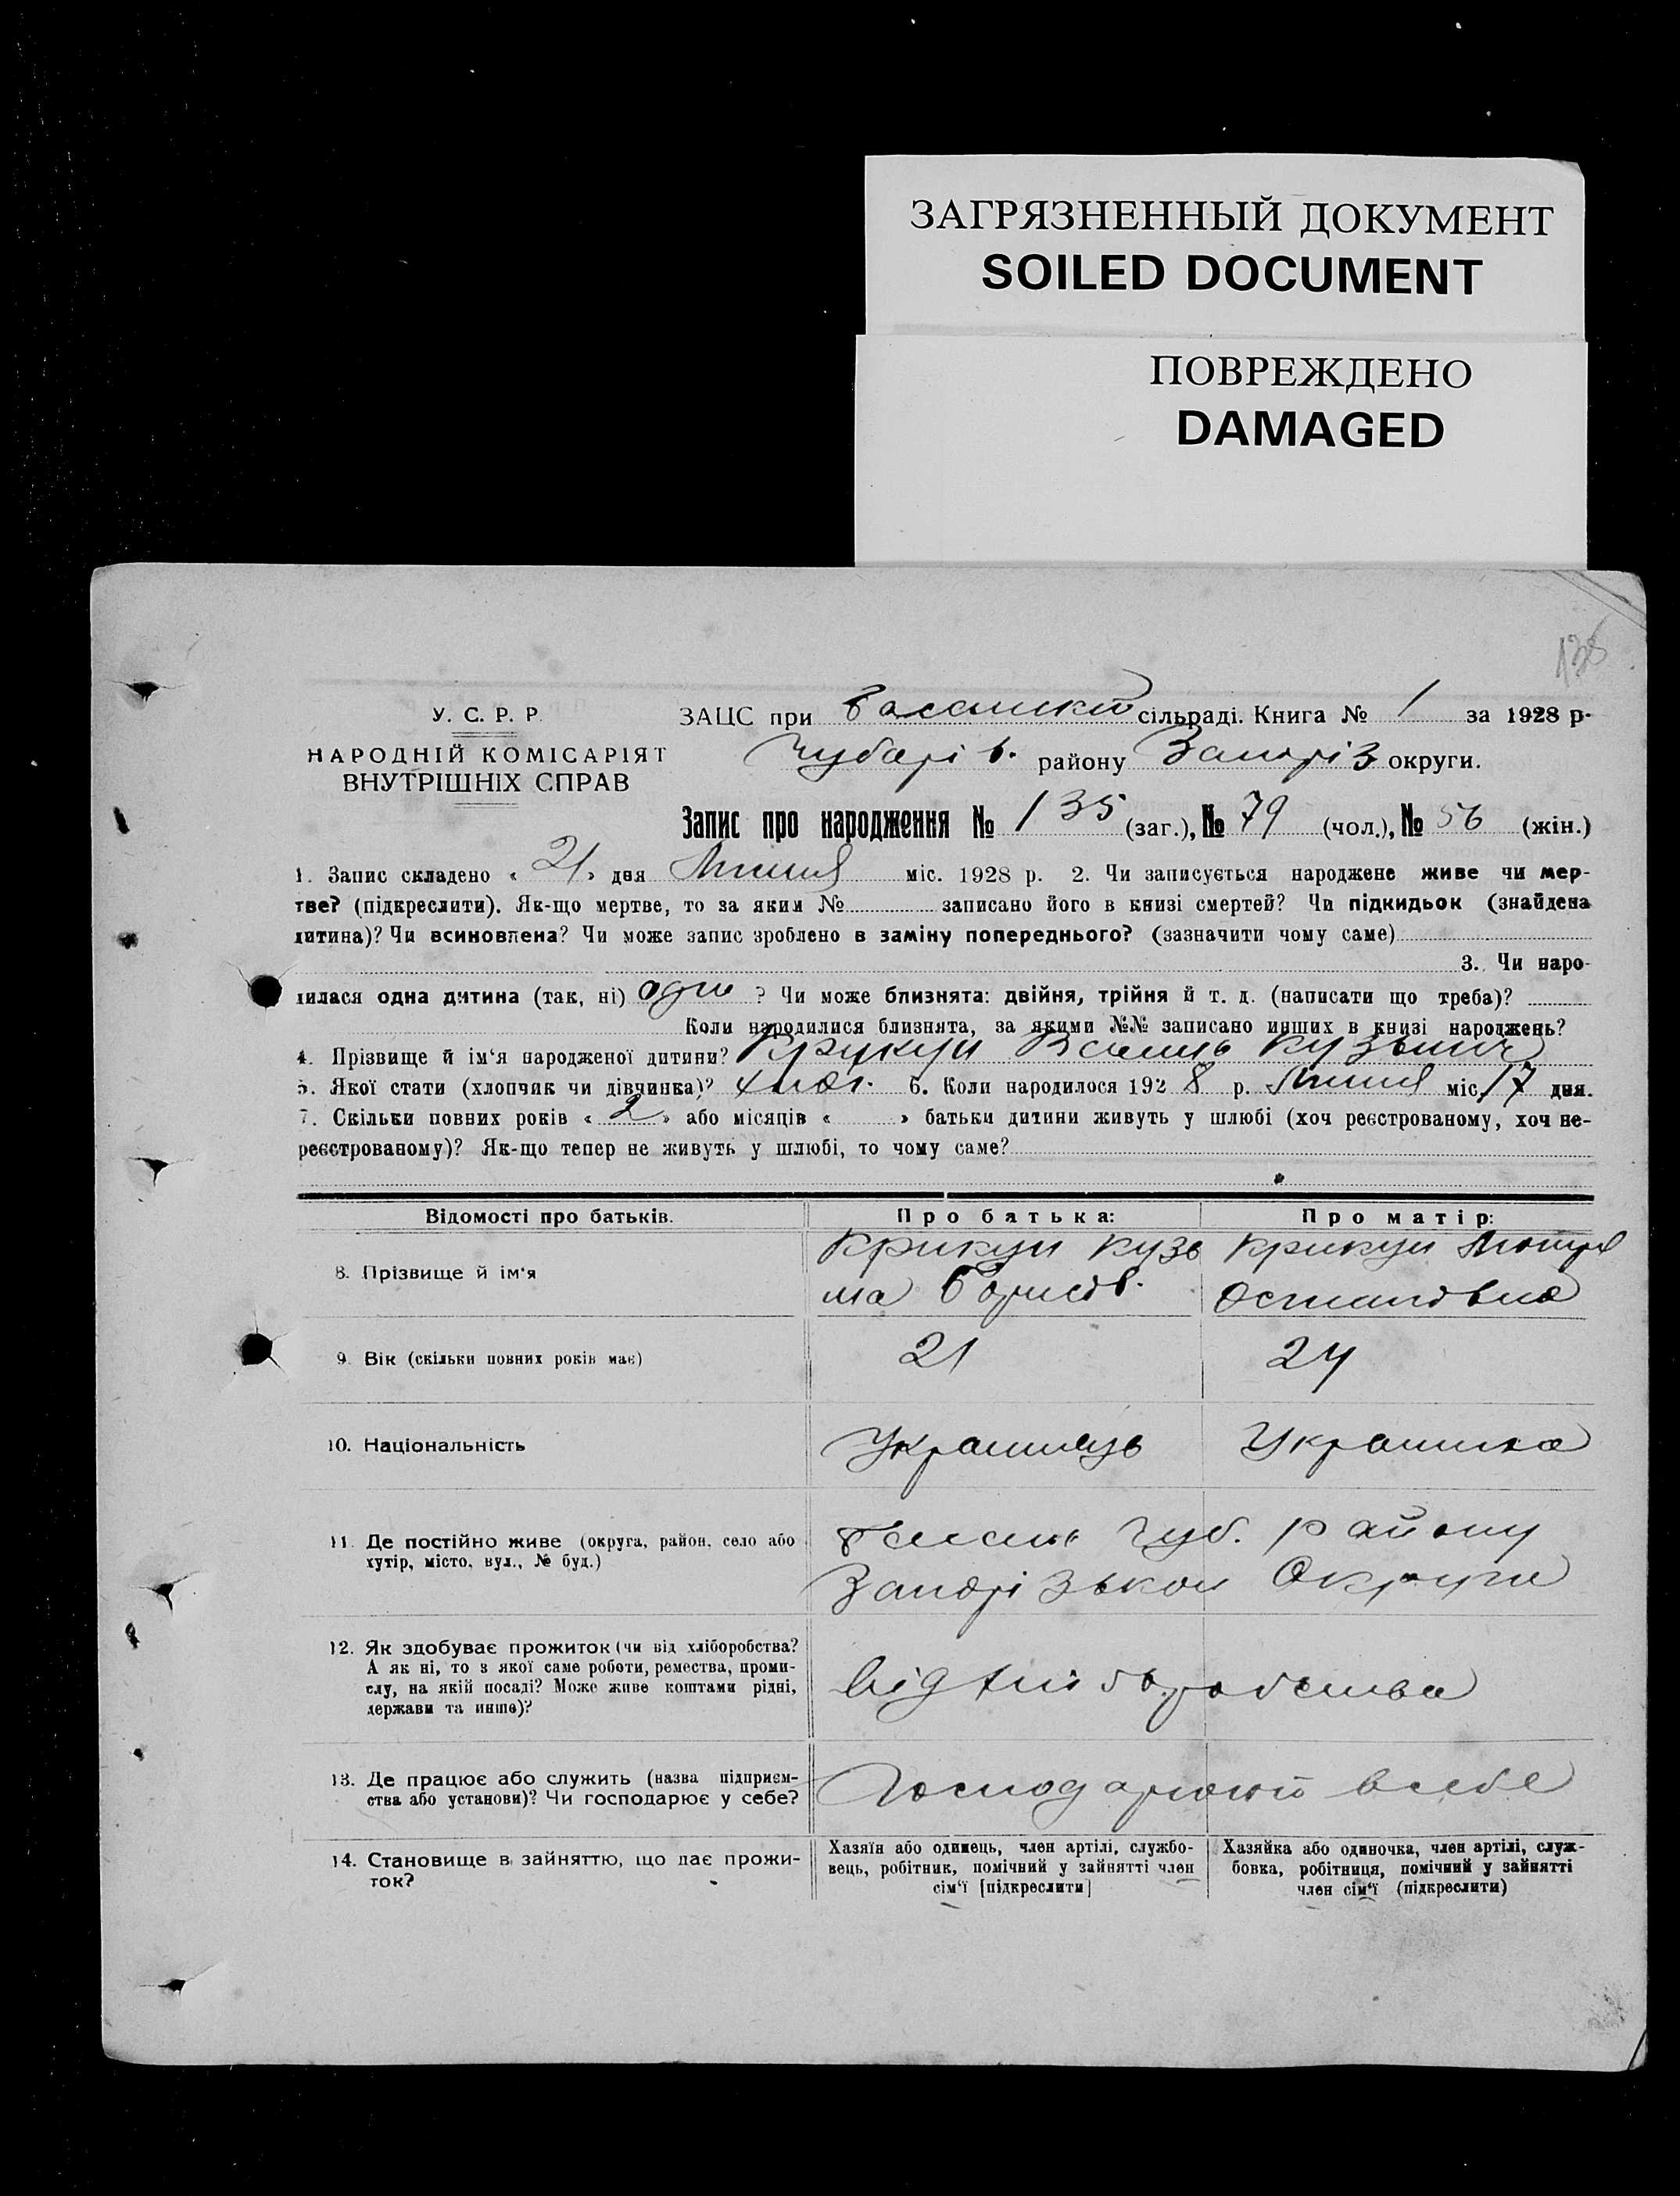 ЗАГРЯЗНЕННЫЙ ДОКУМЕНТ
SOILED DOCUMENT
ПОВРЕЖДЕНО
DAMAGED
У. С. Р. Р.
НАРОДНІЙ КОМІСАРІЯТ
ВНУТРІШНІХ СПРАВ
ЗАЦС при сільраді. Книга № 1 за 1928 р.
Чубарів. району Запоріз округи.
Запис про народження № 135 (заг.), № 79 (чол.), № 56 (жін.)
1. Запис складено « 21 » дня Липня міс. 1928 р. 2. Чи записується народжене живе чи мер-
тве? (підкреслити). Як-що мертве, то за яким № записано його в книзі смертей? Чи підкидьок (знайдена
дитина)? Чи всиновлена? Чи може запис зроблено в заміну попереднього? (зазначити чому саме)
3. Чи наро-
дилася одна дитина (так, ні) одно ? Чи може близнята: двійня, трійня й т. д. (написати що треба)?
Коли народилися близнята, за якими №№ записано инших в книзі народжень?
4. Прізвище й ім‘я народженої дитини? Крикун Василь Кузьмич
5. Якої стати (хлопчик чи дівчинка)? хлоп. 6. Коли народилося 1928 р. Липня міс. 17 дня.
7. Скільки повних років « 2 » або місяців « » батьки дитини живуть у шлюбі (хоч реєстрованому, хоч не-
реєстрованому)? Як-що тепер не живуть у шлюбі, то чому саме?
Відомості про батьків. Про батька: Про матір:
8. Прізвище й ім‘я
Крикун Кузь
ма Борисов.
Крикун
Остаповна
9. Вік (скільки повних років має) 21 24
10. Національність Українець Українка
11. Де постійно живе (округа, район, село або
хутір, місто, вул., № буд.)
Чуб. району
Запорізькои Округи
12. Як здобуває прожиток (чи від хліборобства?
А як ні, то з якої саме роботи, ремества, проми-
слу, на якій посаді? Може живе коштами рідні,
держави та инше)?
від хліборобства
13. Де працює або служить (назва підприєм-
ства або установи)? Чи господарює у себе?
Господарюют всебе
14. Становище в зайняттю, що дає прожи-
ток?
Хазяїн або одинець, член артілі, службо-
вець, робітник, помічний у зайнятті член
сім‘ї [підкреслити]
Хазяйка або одиночка, член артілі, служ-
бовка, робітниця, помічний у зайнятті
член сім‘ї (підкреслити)